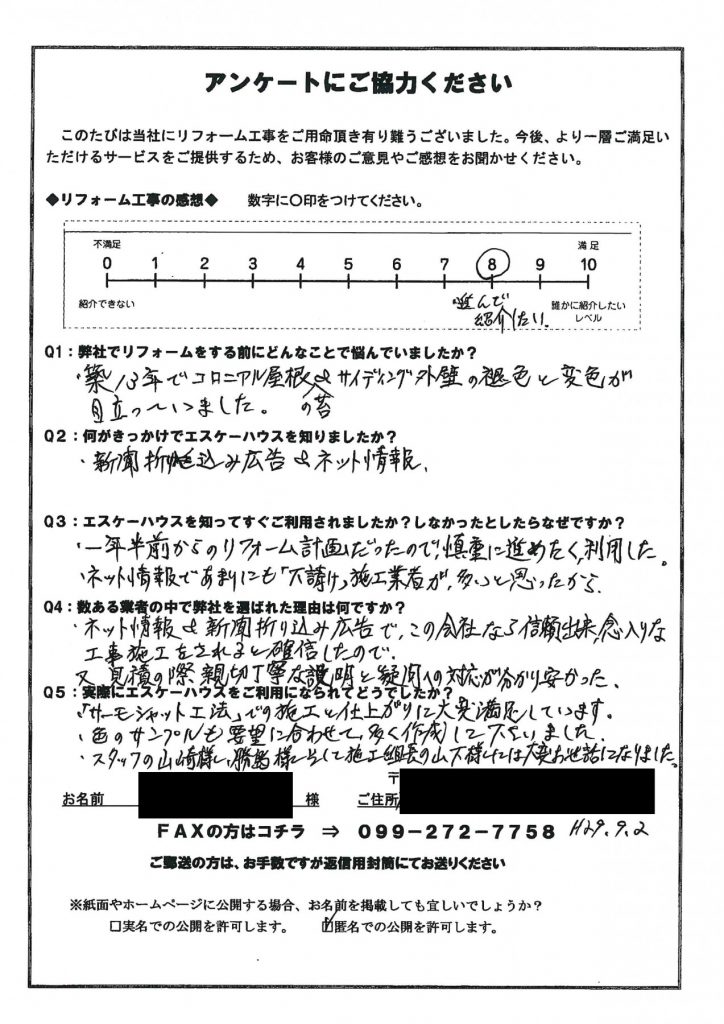 アンケートにご協力ください
このたびは当社にリフォーム工事をご用命頂き有り難うございました。今後、より一層ご満足い
ただけるサービスをご提供するため、お客様のご意見やご感想をお聞かせください。
◆リフォーム工事の感想◆ 数字に〇印をつけてください。
不満足 満足
0 1 2 3 4 5 6 7 8 9 10
紹介できない 誰かに紹介したい
レベル
進んで
紹介したい.
Q1:弊社でリフォームをする前にどんなことで悩んでいましたか?
・築13年でコロニアル屋根の苔&サイディング外壁の褪色と変色が
目立っていました。
Q2:何がきっかけでエスケーハウスを知りましたか?
・新聞折り込み広告&ネット情報.
Q3:エスケーハウスを知ってすぐご利用されましたか?しなかったとしたらなぜですか?
・一年半前からのリフォーム計画だったので、慎重に進めたく、利用した。
・ネット情報であまりにも「下請け」施工業者が、多いと思ったから.
Q4:数ある業者の中で弊社を選ばれた理由は何ですか?
・ネット情報&新聞折り込み広告で、この会社なら信頼出来、念入りな
工事施工をされると確信したので.
又見積の際親切丁寧な説明と疑問への対応が分かり安かった.
Q5:実際にエスケーハウスをご利用になられてどうでしたか?
・「サーモシャット工法」での施工と仕上がりに大変満足しています。
・色のサンプルも要望に合わせて、多く作成して下さいました.
・スタッフの山崎様、勝島様そして施工組長の山下様には大変お世話になりました。
〒
お名前 様 ご住所
FAXの方はコチラ ⇒ 099-272-7758 H29.9.2
ご郵送の方は、お手数ですが返信用封筒にてお送りください
※紙面やホームページに公開する場合、お名前を掲載しても宜しいでしょうか?
□実名での公開を許可します。 ☑匿名での公開を許可します。